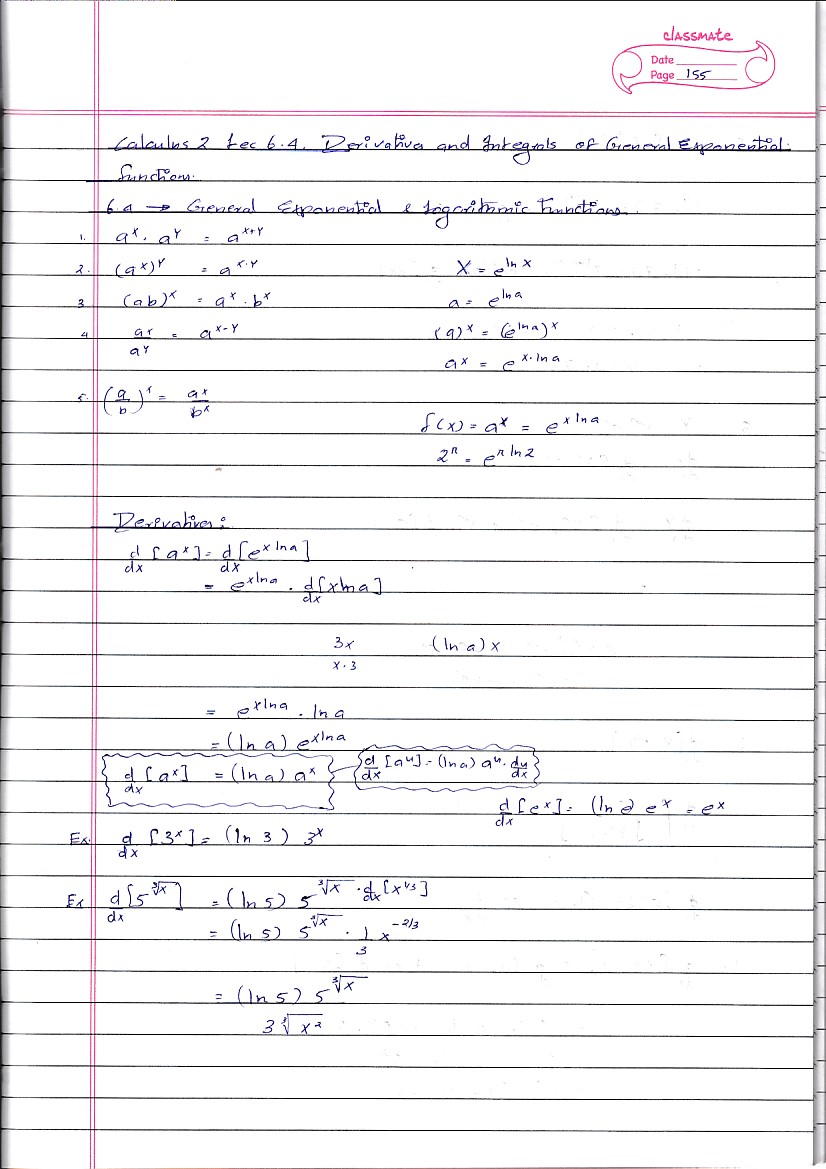 classmate
Date
Page 155
Calculus 2 Lec 6.4. Derivative and Integrals of General Exponential
functions.
6.4 → General Exponential & Logarithmic Functions.
1. a^x . a^y = a^(x+y)
2. (a^x)^y = a^(x.y)
x = e^(ln x)
3 (ab)^x = a^x . b^x
a = e^(ln a)
4 a^x/a^y = a^(x-y)
(a)^x = (e^(ln a))^x
a^x = e^(x.ln a)
5. (a/b)^x = a^x/b^x
f(x) = a^x = e^(x ln a)
2^π = e^(π ln 2)
Derivative:
d/dx [a^x] = d/dx [e^(x ln a)]
= e^(x ln a) . d/dx [x ln a]
3x (ln a) x
x.3
= e^(x ln a) . ln a
= (ln a) e^(x ln a)
d/dx [a^x] = (ln a) a^x
d/dx [a^u] = (ln a) a^u . du/dx
d/dx [e^x] = (ln e) e^x = e^x
Ex. d/dx [3^x] = (ln 3) 3^x
Ex d/dx [5^(∛x)] = (ln 5) 5^(∛x) . d/dx [x^(1/3)]
= (ln 5) 5^(∛x) . 1/3 x^(-2/3)
= (ln 5) 5^(∛x)
3 ∛(x²)